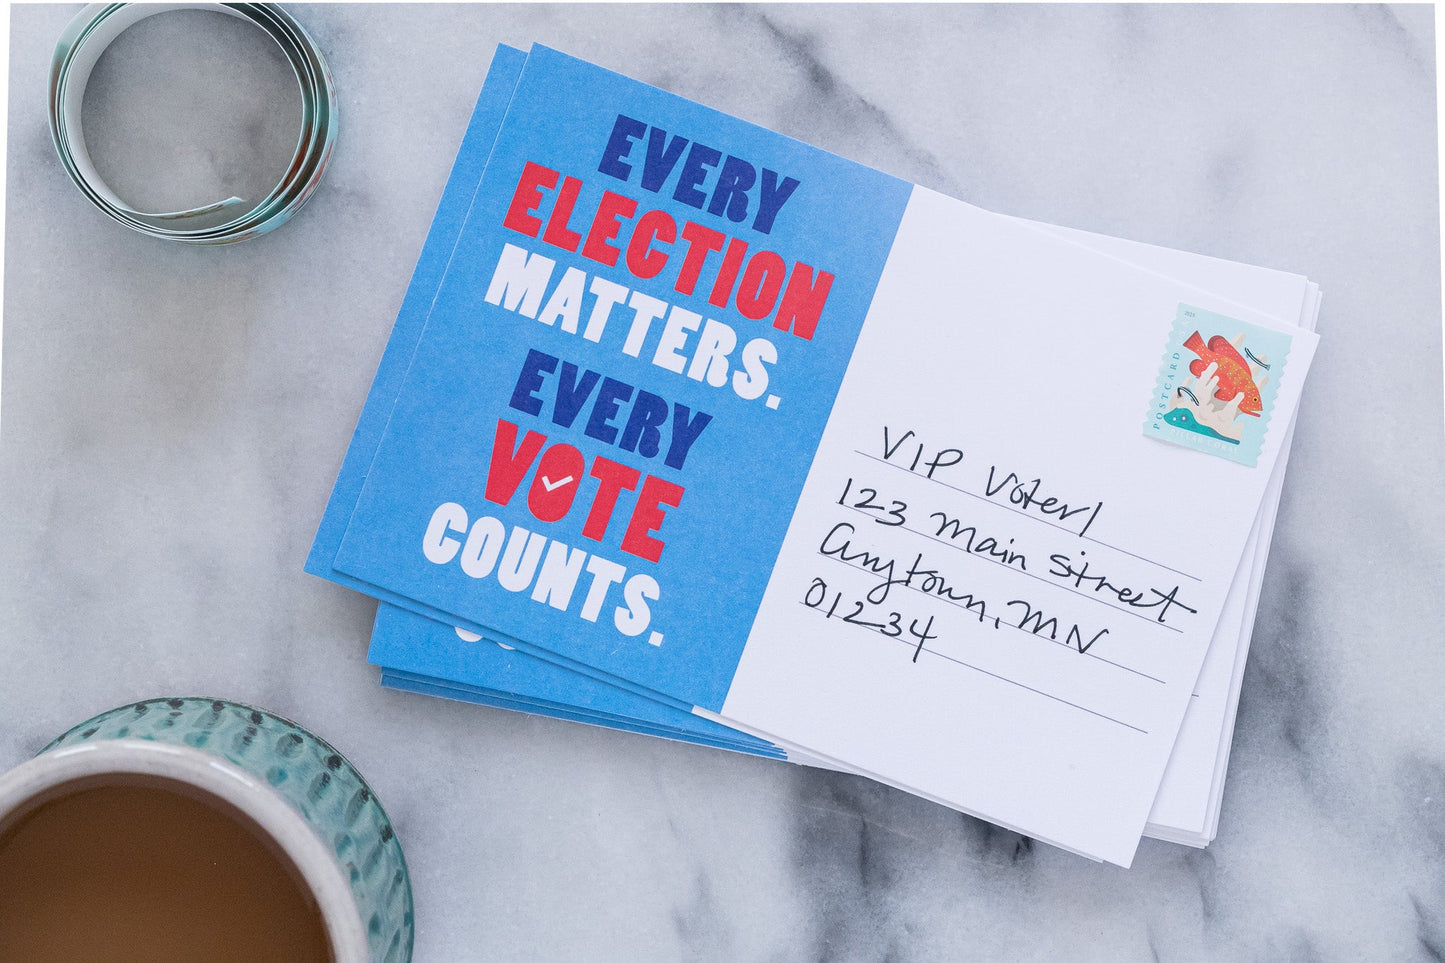 EVERY
ELECTION
MATTERS.
EVERY
VOTE
COUNTS.
POSTCARD
VIP Voter!
123 Main Street
Anytown, MN
01234